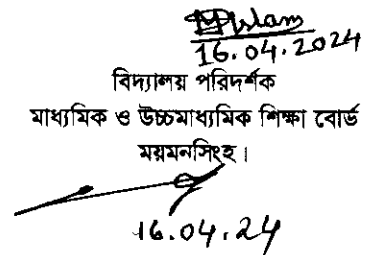 16.04.2024
বিদ্যালয় পরিদর্শক
মাধ্যমিক ও উচ্চমাধ্যমিক শিক্ষা বোর্ড
ময়মনসিংহ।
16.04.24